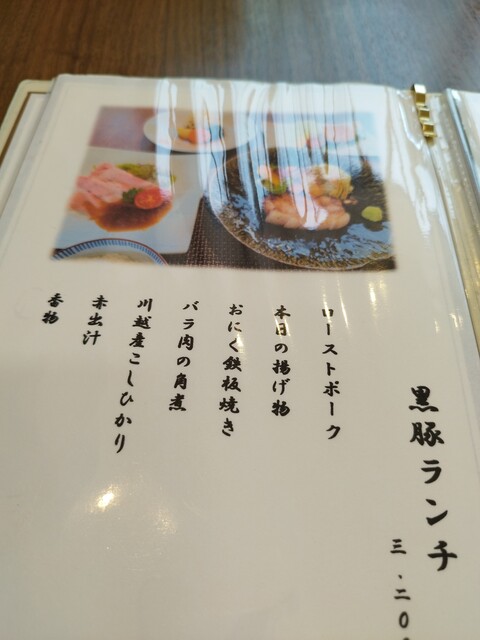 黒豚ランチ
三.二〇
ローストポーク
本日の揚げ物
おにく鉄板焼き
バラ肉の角煮
川越産こしひかり
赤出汁
香物